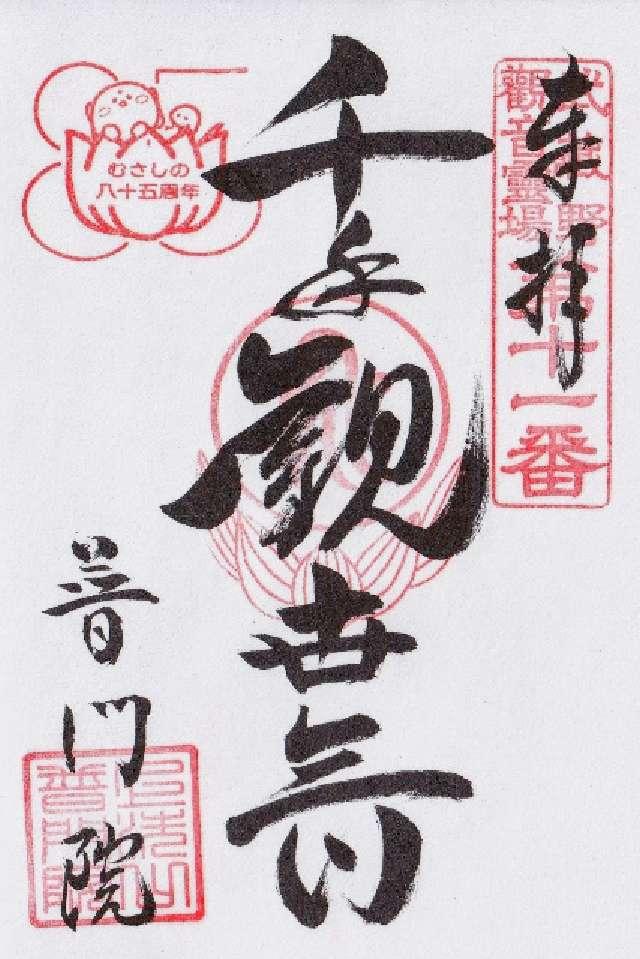 奉拝
武蔵野
觀音霊場
第十一番
千手観世音
むさしの
八十五周年
普門院